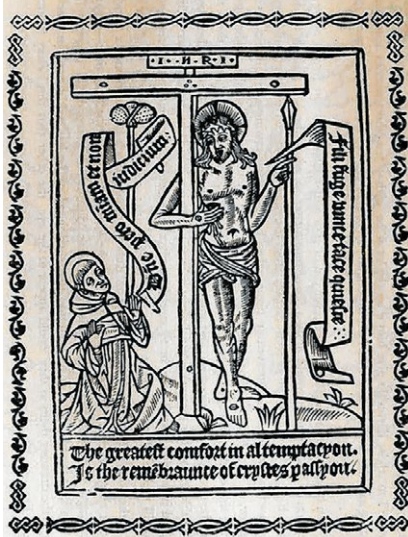 ·I·N·R·I·
iudicium:
Fili fuge vince tace quiesce:
The greatest comfort in al temptacyon.
Is the remēbraunce of crystes passyon.